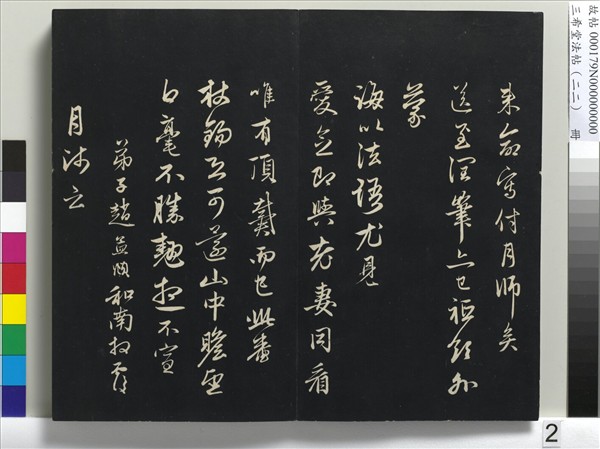 故帖 000179N000000000
三希堂法帖（二二） 冊
來命寫付月師矣
送至潤筆亦已祗領外
蒙
誨以法語尤見
愛念即與老妻同看
唯有頂戴而已此番
杖錫可還山中瞻望
白毫不勝翹想不宣
弟子趙孟頫和南拜覆
月師云
2